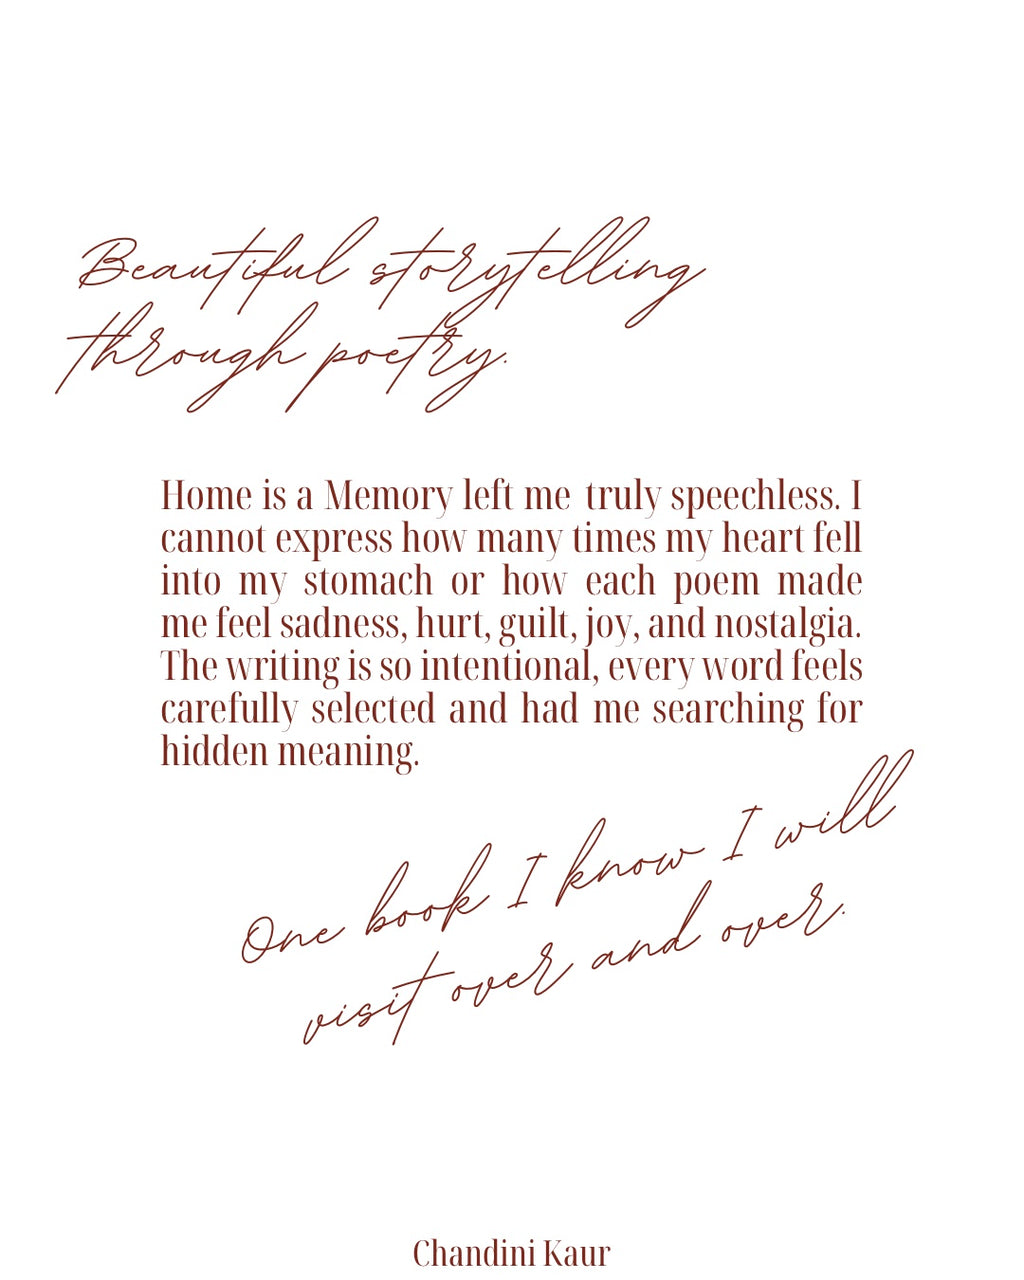 Beautiful storytelling
through poetry.
Home is a Memory left me truly speechless. I
cannot express how many times my heart fell
into my stomach or how each poem made
me feel sadness, hurt, guilt, joy, and nostalgia.
The writing is so intentional, every word feels
carefully selected and had me searching for
hidden meaning.
One book I know I will
visit over and over.
Chandini Kaur